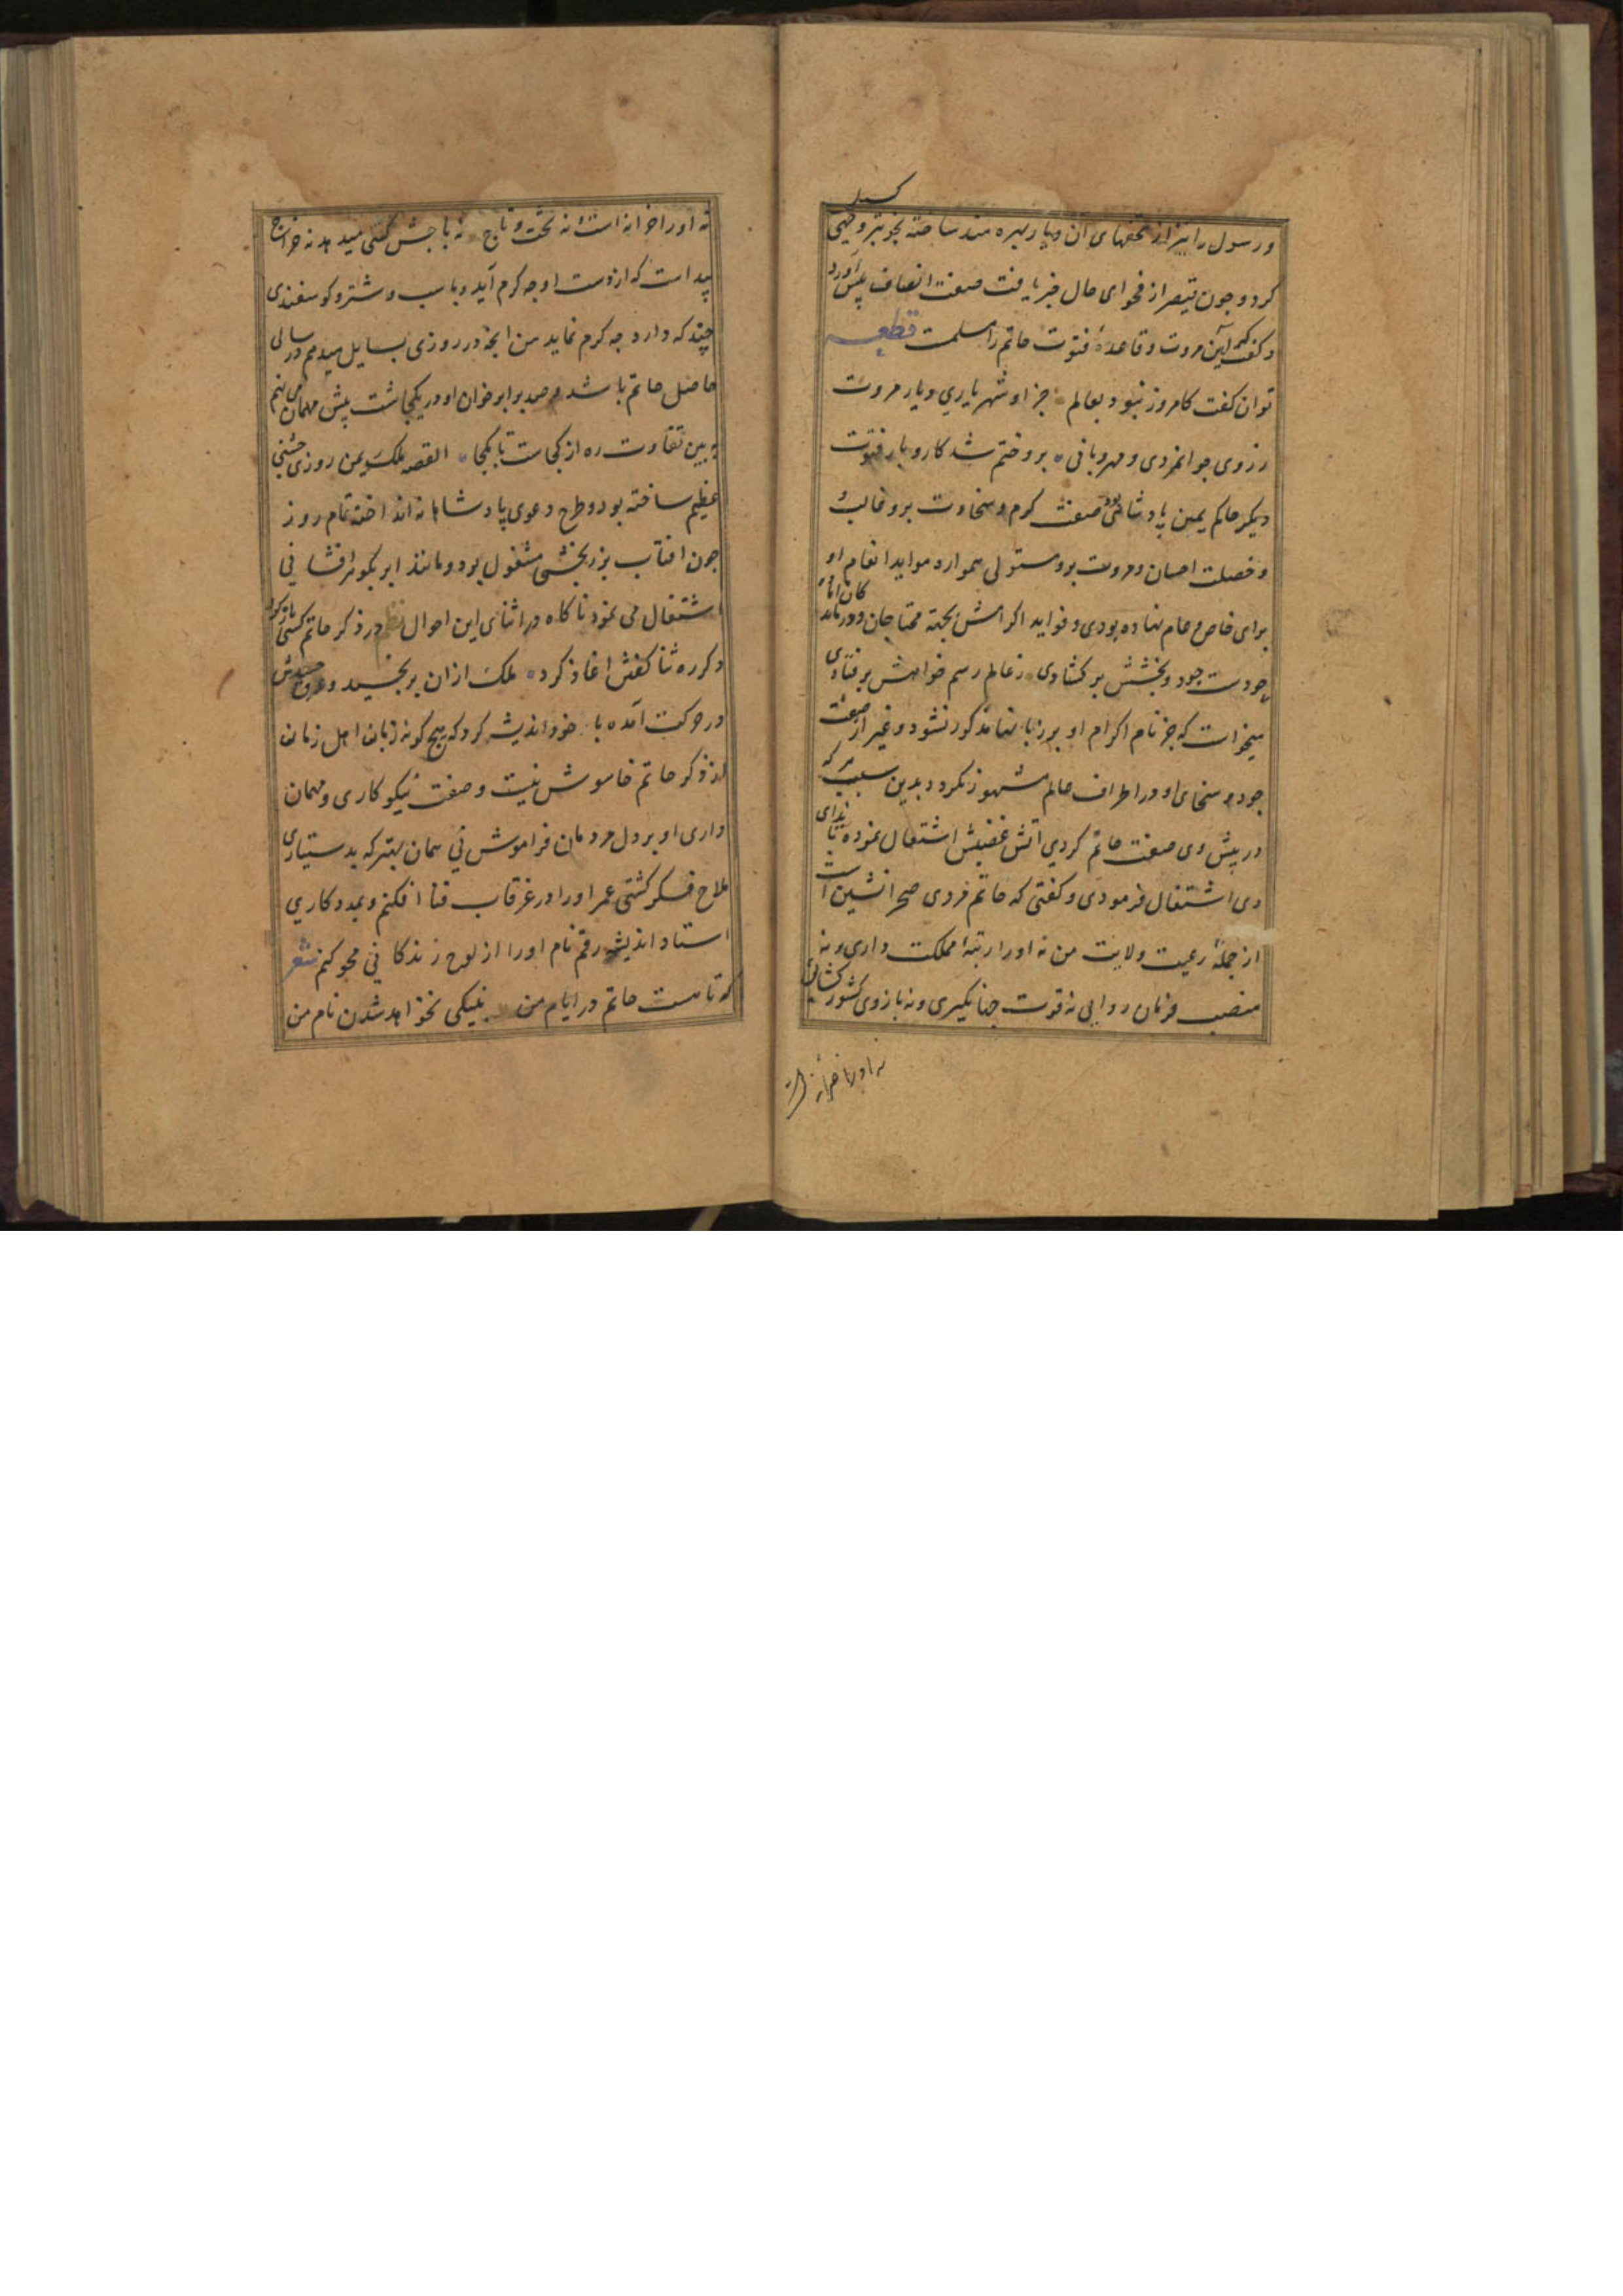 و رسول را نیز از تحفهای آن دیار بهره مند ساخته بخوبتر وجهی کسیل
کرد و چون قیصر از فحوای حال خبر یافت صفت انصاف پیش آورد
و کفت که آیین مروت و قاعدهٔ فتوت حاتم را مسلمت قطعه
توان کفت کامروز نبود بعالم جز او شهریاری دیار مروت
ز روی جوانمردی و مهربانی بر و ختم شد کار و بار فتوت
دیکر حاکم یمین پادشاهی بود صفت کرم و سخاوت برو غالب
و خصلت احسان و مروت برو مستولی همواره موایدا نعام او
برای خاص و عام نهاده بودی و فواید اکرامش بجهة محتاجان و درماندکان اماده
چو دست جود و بخشش بر کشادی ز عالم رسم خواهش بر فتادی
میخواست که جز نام اکرام او بر زبانها مذکور نشود و غیر از صفت
جود و سخای او در اطراف عالم مشهور نکردد بدین سبب هر که
در پیش وی صفت حاتم کردی آتش غضبش اشتعال نموده بایذای
وی اشتغال فرمودی و کفتی که حاتم فردی صحرانشین است
از جملهٔ رعیت ولایت من نه اورا رتبهٔ مملکت داری و نه
منصب فرمان روایی نه قوت جهانکیری و نه بازوی کشور کشائی
نه اورا خزانه است
نه اورا خزانه است نه تخت و تاج نه باجش کسی میدهد نه خراج
پیداست که از دست او چه کرم آید و باسب و شتر و کوسفندی
چند که دارد چه کرم نماید من انچه در روزی بسایل میدهم در سالی
حاصل حاتم باشد و صد برابر خوان او در یکچاشت پیش مهمان می نهم
ببین تفاوت ره از کجاست تا بکجا القصه ملک یمن روزی جشنی
عظیم ساخته بود و طرح دعوی پادشاهانه انداخته تمام روز
چون افتاب بزر بخشی مشغول بود و مانند ابر بکوهر افشانی
اشتغال می نمود ناکاه در اثنای این احوال نظم در ذکر حاتم کسی باز کرد
دکر ره ثنا کفتن اغاز کرد ملک ازان برنجید و عرق حسدش
در حرکت آمده با خود اندیشه کرد که هیچ کونه زبان اهل زمان
از ذکر حاتم خاموش نیست و صفت نیکو کاری و مهمان
داری او بر دل مردمان فراموش نی همان بهتر که بدستیاری
ملاح فکر کشتی عمر اورا در غرقاب فنا افکنم و بمددکاری
استاد اندیشه رقم نام اورا از لوح زندکانی محو کنم شعر
که تا هست حاتم در ایام من بنیکی نخواهد شدن نام من